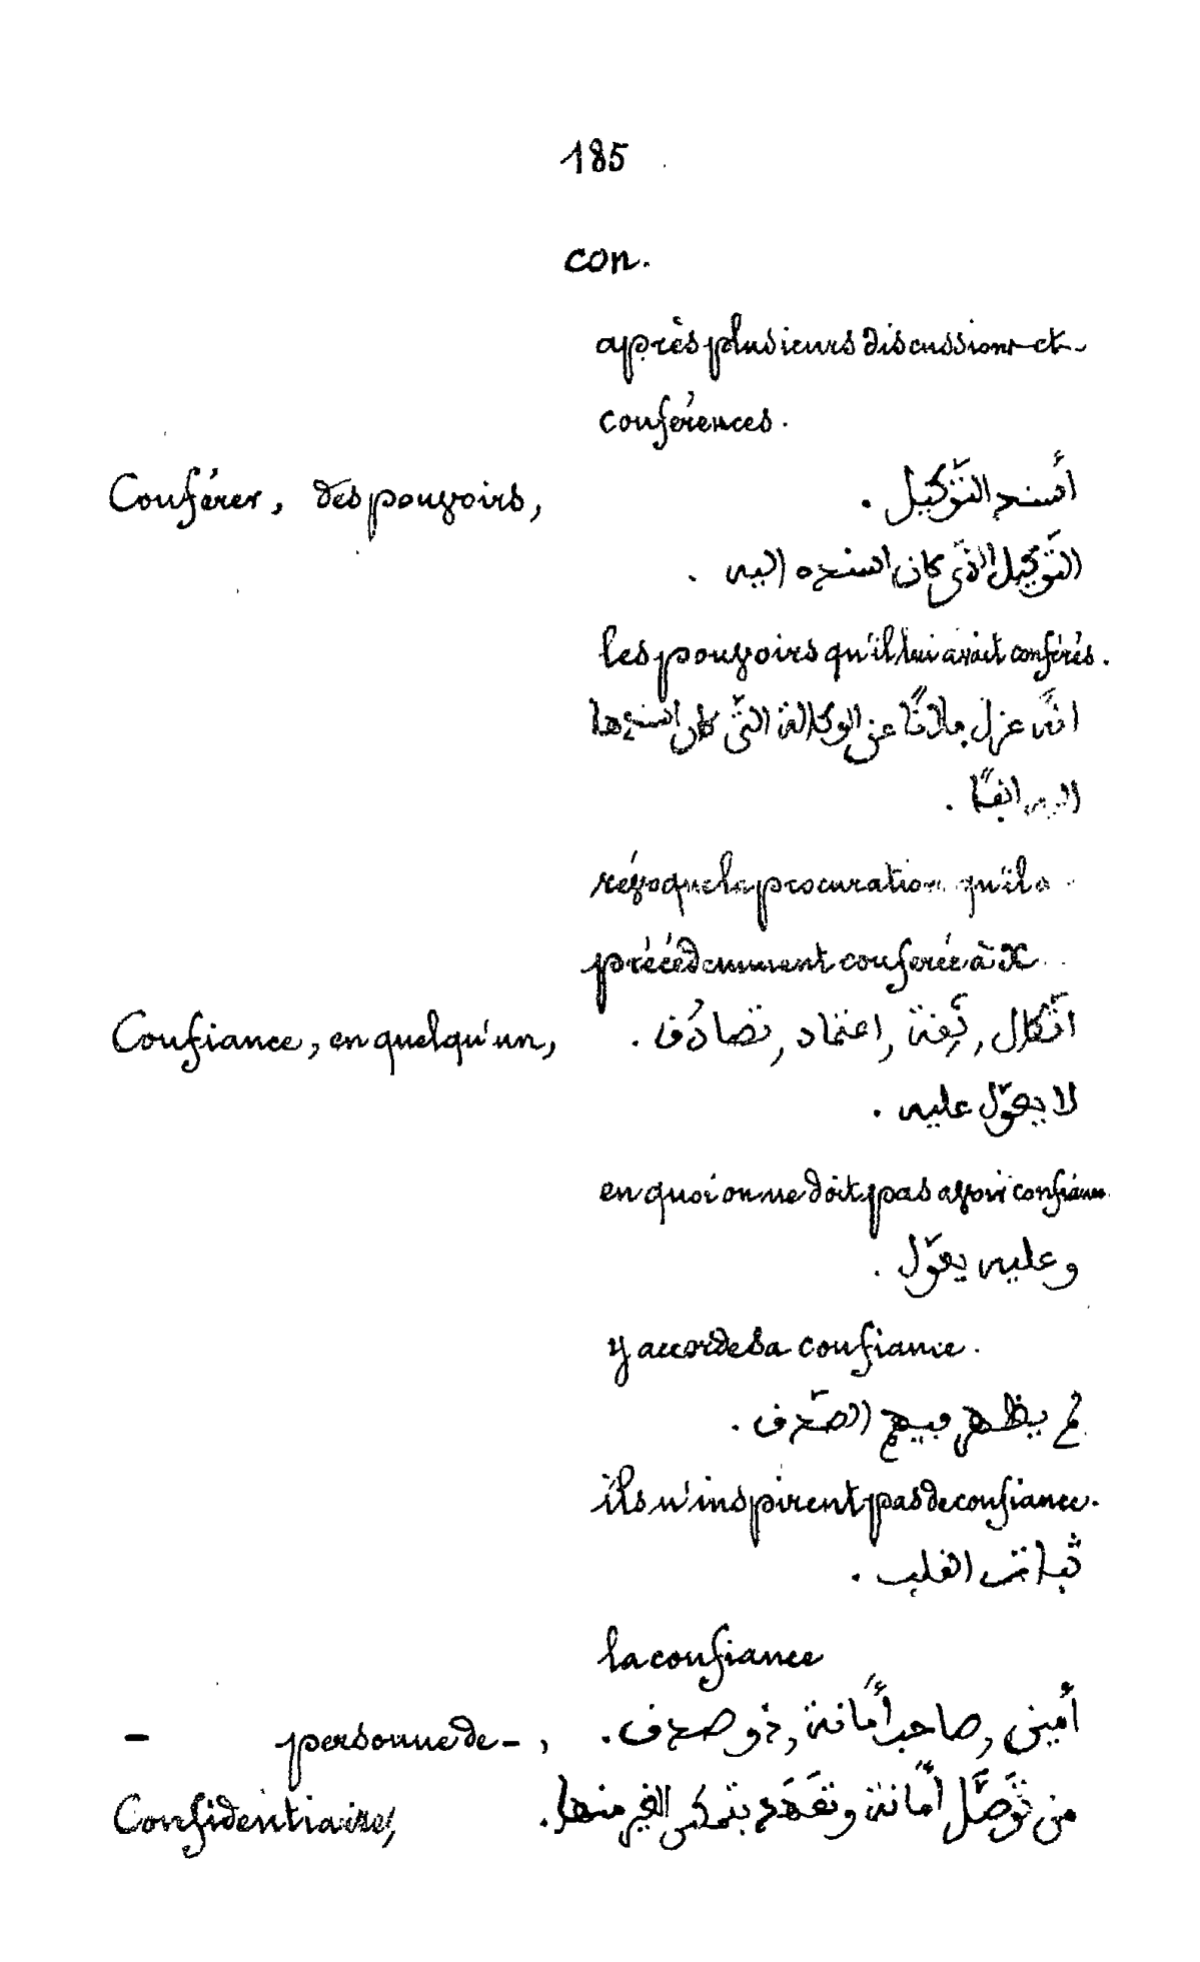 185
con.
après plusieurs discussions et
conférences.
Conférer, des pouvoirs, أسند التوّكيل.
التَّوكيل الذّي كان اسنده اليه.
les pouvoirs qu'il lui avait conférés.
انّه عزل فلانًا عن الوكالة التّي كان اسندها
اليه انفًا.
révoque la procuration qu'il a
précédemment conferée à X
Confiance, en quelqu'un, اتّكال, ثِقة, اعتماد, تصادُق.
لا يعوّل عليه.
en quoi on ne doit pas avoir confiance.
وعليه يعوّل.
y accorde sa confiance.
لم يظهر فيهم الصّدق.
ils n'inspirent pas de confiance.
ثبات القلب.
la confiance
– personne de –, أمين, صاحب أمانة, ذو صدق.
Confidentiaire, من تَوَصَّل أمانة وتعَهَّد بتمكين الغير منها.